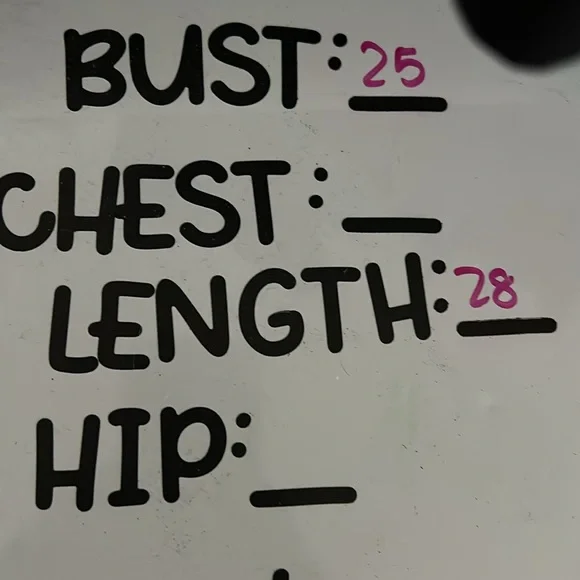 BUST: 25
CHEST: _
LENGTH: 28
HIP: _